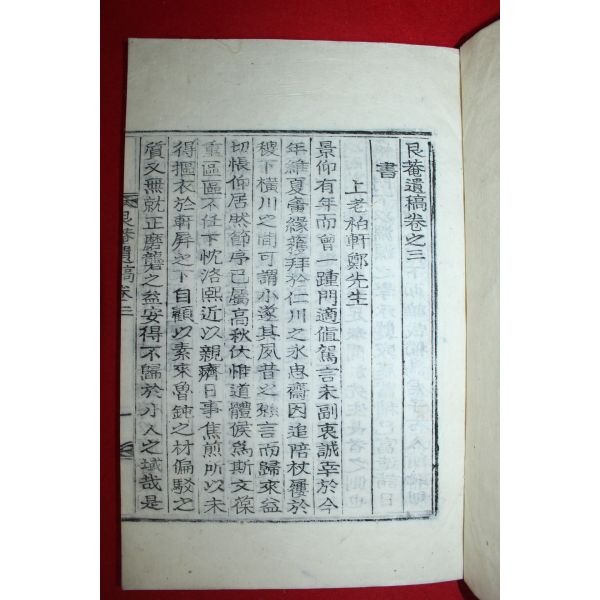 艮菴遺稿卷之三
書
上老柏軒鄭先生
景仰有年而曾一踵門適値駕言未副衷誠幸於今
年維夏夤緣獲拜於仁川之永思齋因追陪杖屨於
稷下橫川之間可謂小遂其夙昔之
言而歸來益
切悵仰居然節序已屬高秋伏惟道體候爲斯文葆
重區區不任下忱洛熙近以親癠日事焦煎所以未
得摳衣於軒屏之下自顧以素來魯鈍之材偏駁之
質又無就正磨礱之益安得不歸於小人之域哉是
艮菴遺稿卷三 一